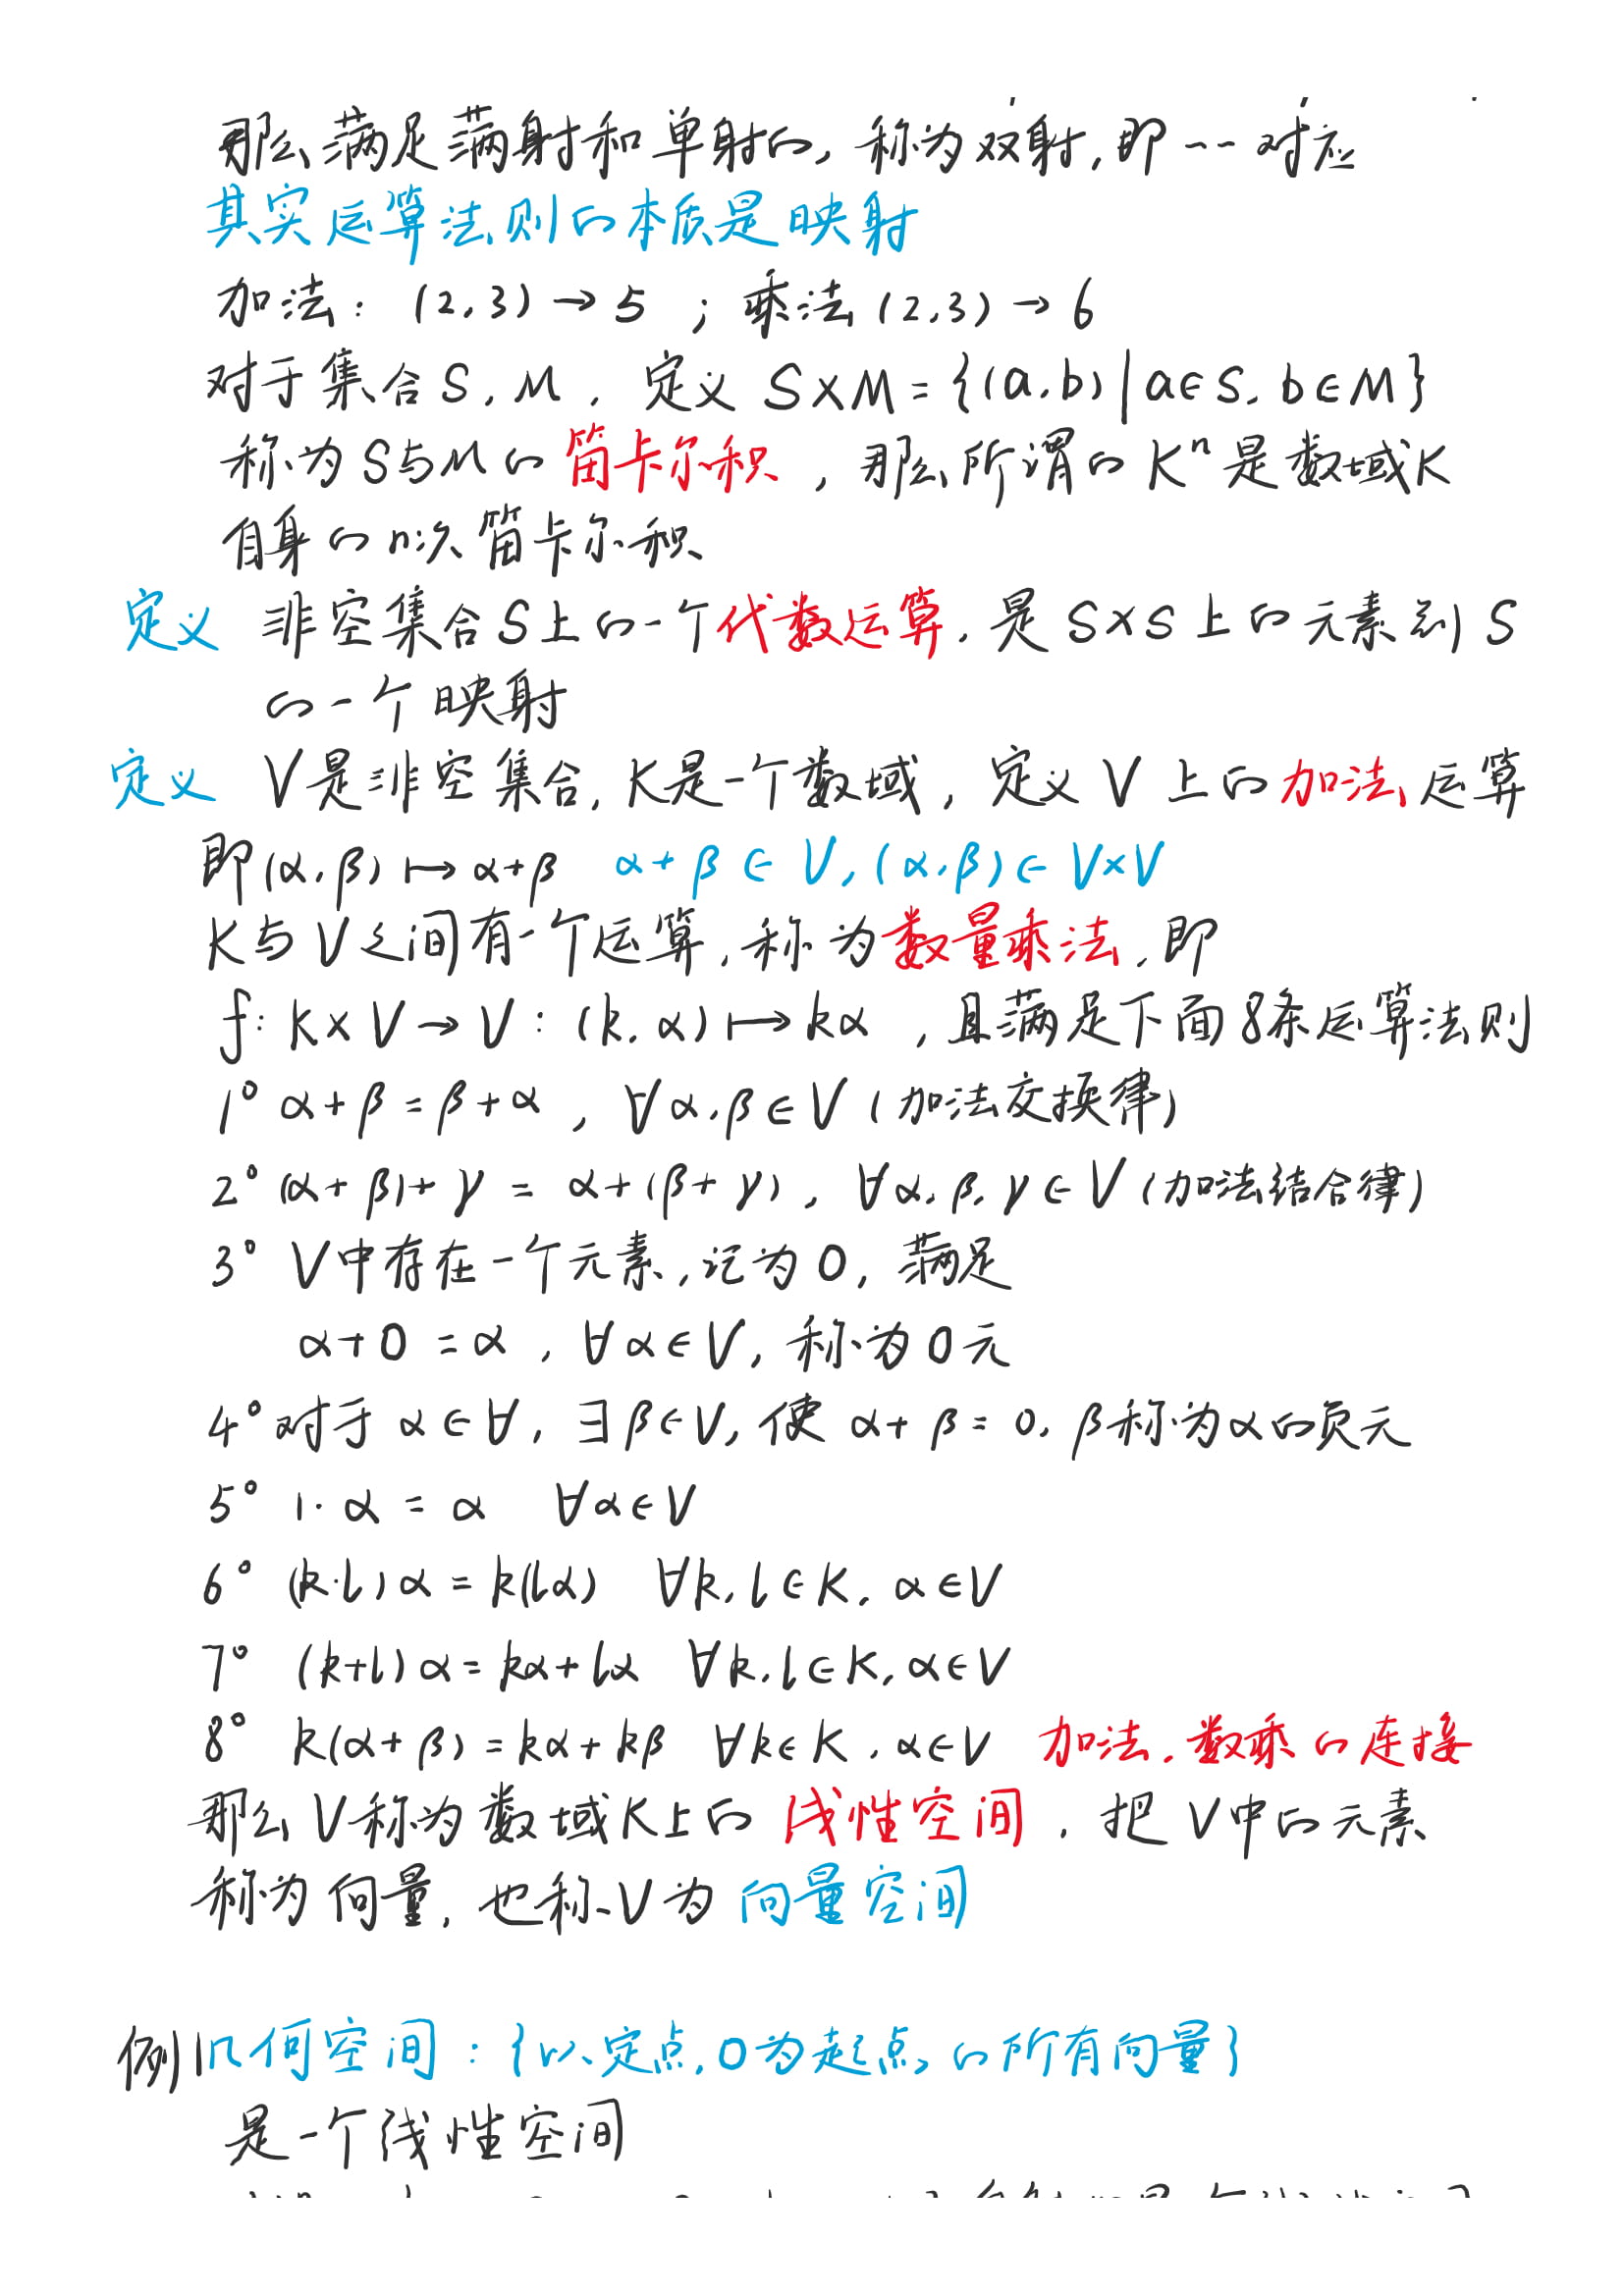 那么满足满射和单射的，称为双射，即一一对应
其实运算法则的本质是映射
加法：(2,3)→5 ；乘法(2,3)→6
对于集合S，M，定义 S×M={(a,b)|a∈S，b∈M}
称为S与M的笛卡尔积，那么所谓的Kⁿ是数域K
自身的n次笛卡尔积
定义 非空集合S上的一个代数运算，是S×S上的元素到S
的一个映射
定义 V是非空集合，K是一个数域，定义V上的加法运算
即(α,β)↦α+β α+β∈V，(α,β)∈V×V
K与V之间有一个运算，称为数量乘法，即
f：K×V→V：(k,α)↦kα，且满足下面8条运算法则
1° α+β=β+α，∀α,β∈V（加法交换律）
2° (α+β)+γ=α+(β+γ)，∀α,β,γ∈V（加法结合律）
3° V中存在一个元素，记为0，满足
α+0=α，∀α∈V，称为0元
4° 对于α∈∀，∃β∈V，使α+β=0，β称为α的负元
5° 1·α=α ∀α∈V
6° (k·l)α=k(lα) ∀k,l∈K，α∈V
7° (k+l)α=kα+lα ∀k,l∈K，α∈V
8° k(α+β)=kα+kβ ∀k∈K，α∈V 加法，数乘的连接
那么V称为数域K上的线性空间，把V中的元素
称为向量，也称V为向量空间
例1 几何空间：{以定点O为起点的所有向量}
是一个线性空间